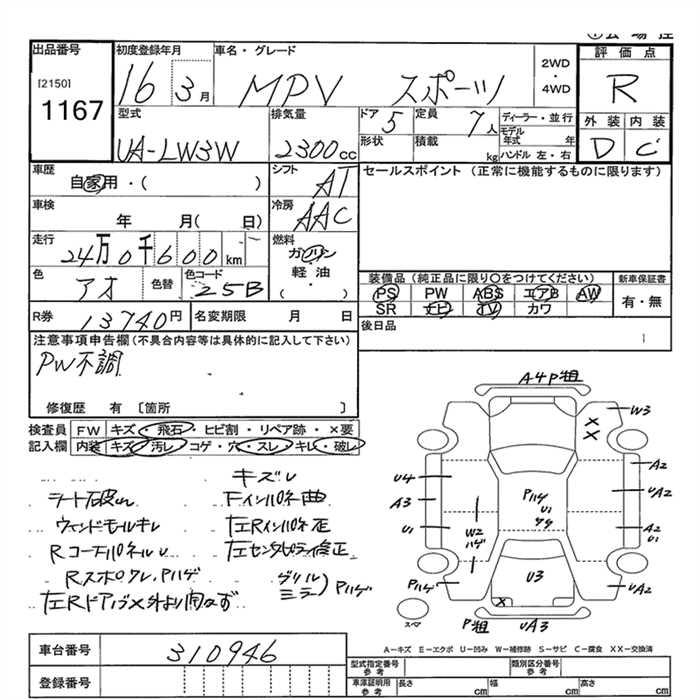 出品番号
[2150]
1167
初度登録年月
16 3月
車名・グレード
MPV スポーツ
2WD
・
4WD
評価点
R
型式
UA-LW3W
排気量
2300cc
ドア 5
定員 7人
ディーラー・並行
形状
積載 kg
モデル年式 年
ハンドル 左・右
外装 内装
D C
車歴
自家用・( )
シフト
AT
セールスポイント (正常に機能するものに限ります)
車検
年 月( 日)
冷房
AAC
走行
24万0千600km
燃料
ガソリン
軽油
( ・ )
色
アオ
色替
色コード
25B
装備品 (純正品に限り○をつけてください)
新車保証書
PS PW ABS エアB AW
SR ナビ TV カワ
有・無
R券 13740円
名変期限 月 日
後日品
注意事項申告欄 (不具合内容等は具体的に記入して下さい)
PW不調
修復歴 有 [箇所 ]
検査員 FW キズ・飛石・ヒビ割・リペア跡・×要
記入欄 内装 キズ・汚し・コゲ・穴・スレ・キレ・破し
キズレ
シート破れ
ウィンドモールキレ
Rコーナーパネルu
Rスポワレ、Pハゲ
左Rドア
Fインパネ曲
左Rインパネ歪
左センタピラー修正
グリル
ミラー Pハゲ
A4P粗
W3
A2
UA2
A2
U1
UA2
U4
A3
U1
W2
ハゲ
Pハゲ
Pハゲ
U1
U3
P粗
UA3
スペア
A-キズ E-エクボ U-凹み W-補修跡 S-サビ C-腐食 XX-交換済
車台番号 310946
登録番号
型式指定番号 参考
類別区分番号 参考
車庫証明用 参考
長さ cm 幅 cm 高さ cm